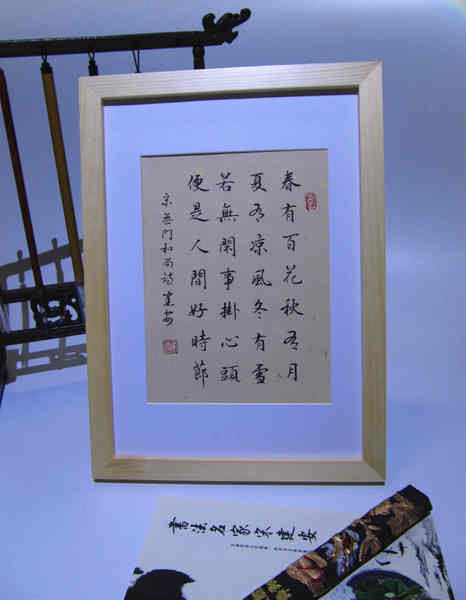 春有百花秋有月
夏有凉風冬有雪
若無閑事掛心頭
便是人間好時節
宋無門和尚詩建安
書法名家宋建安